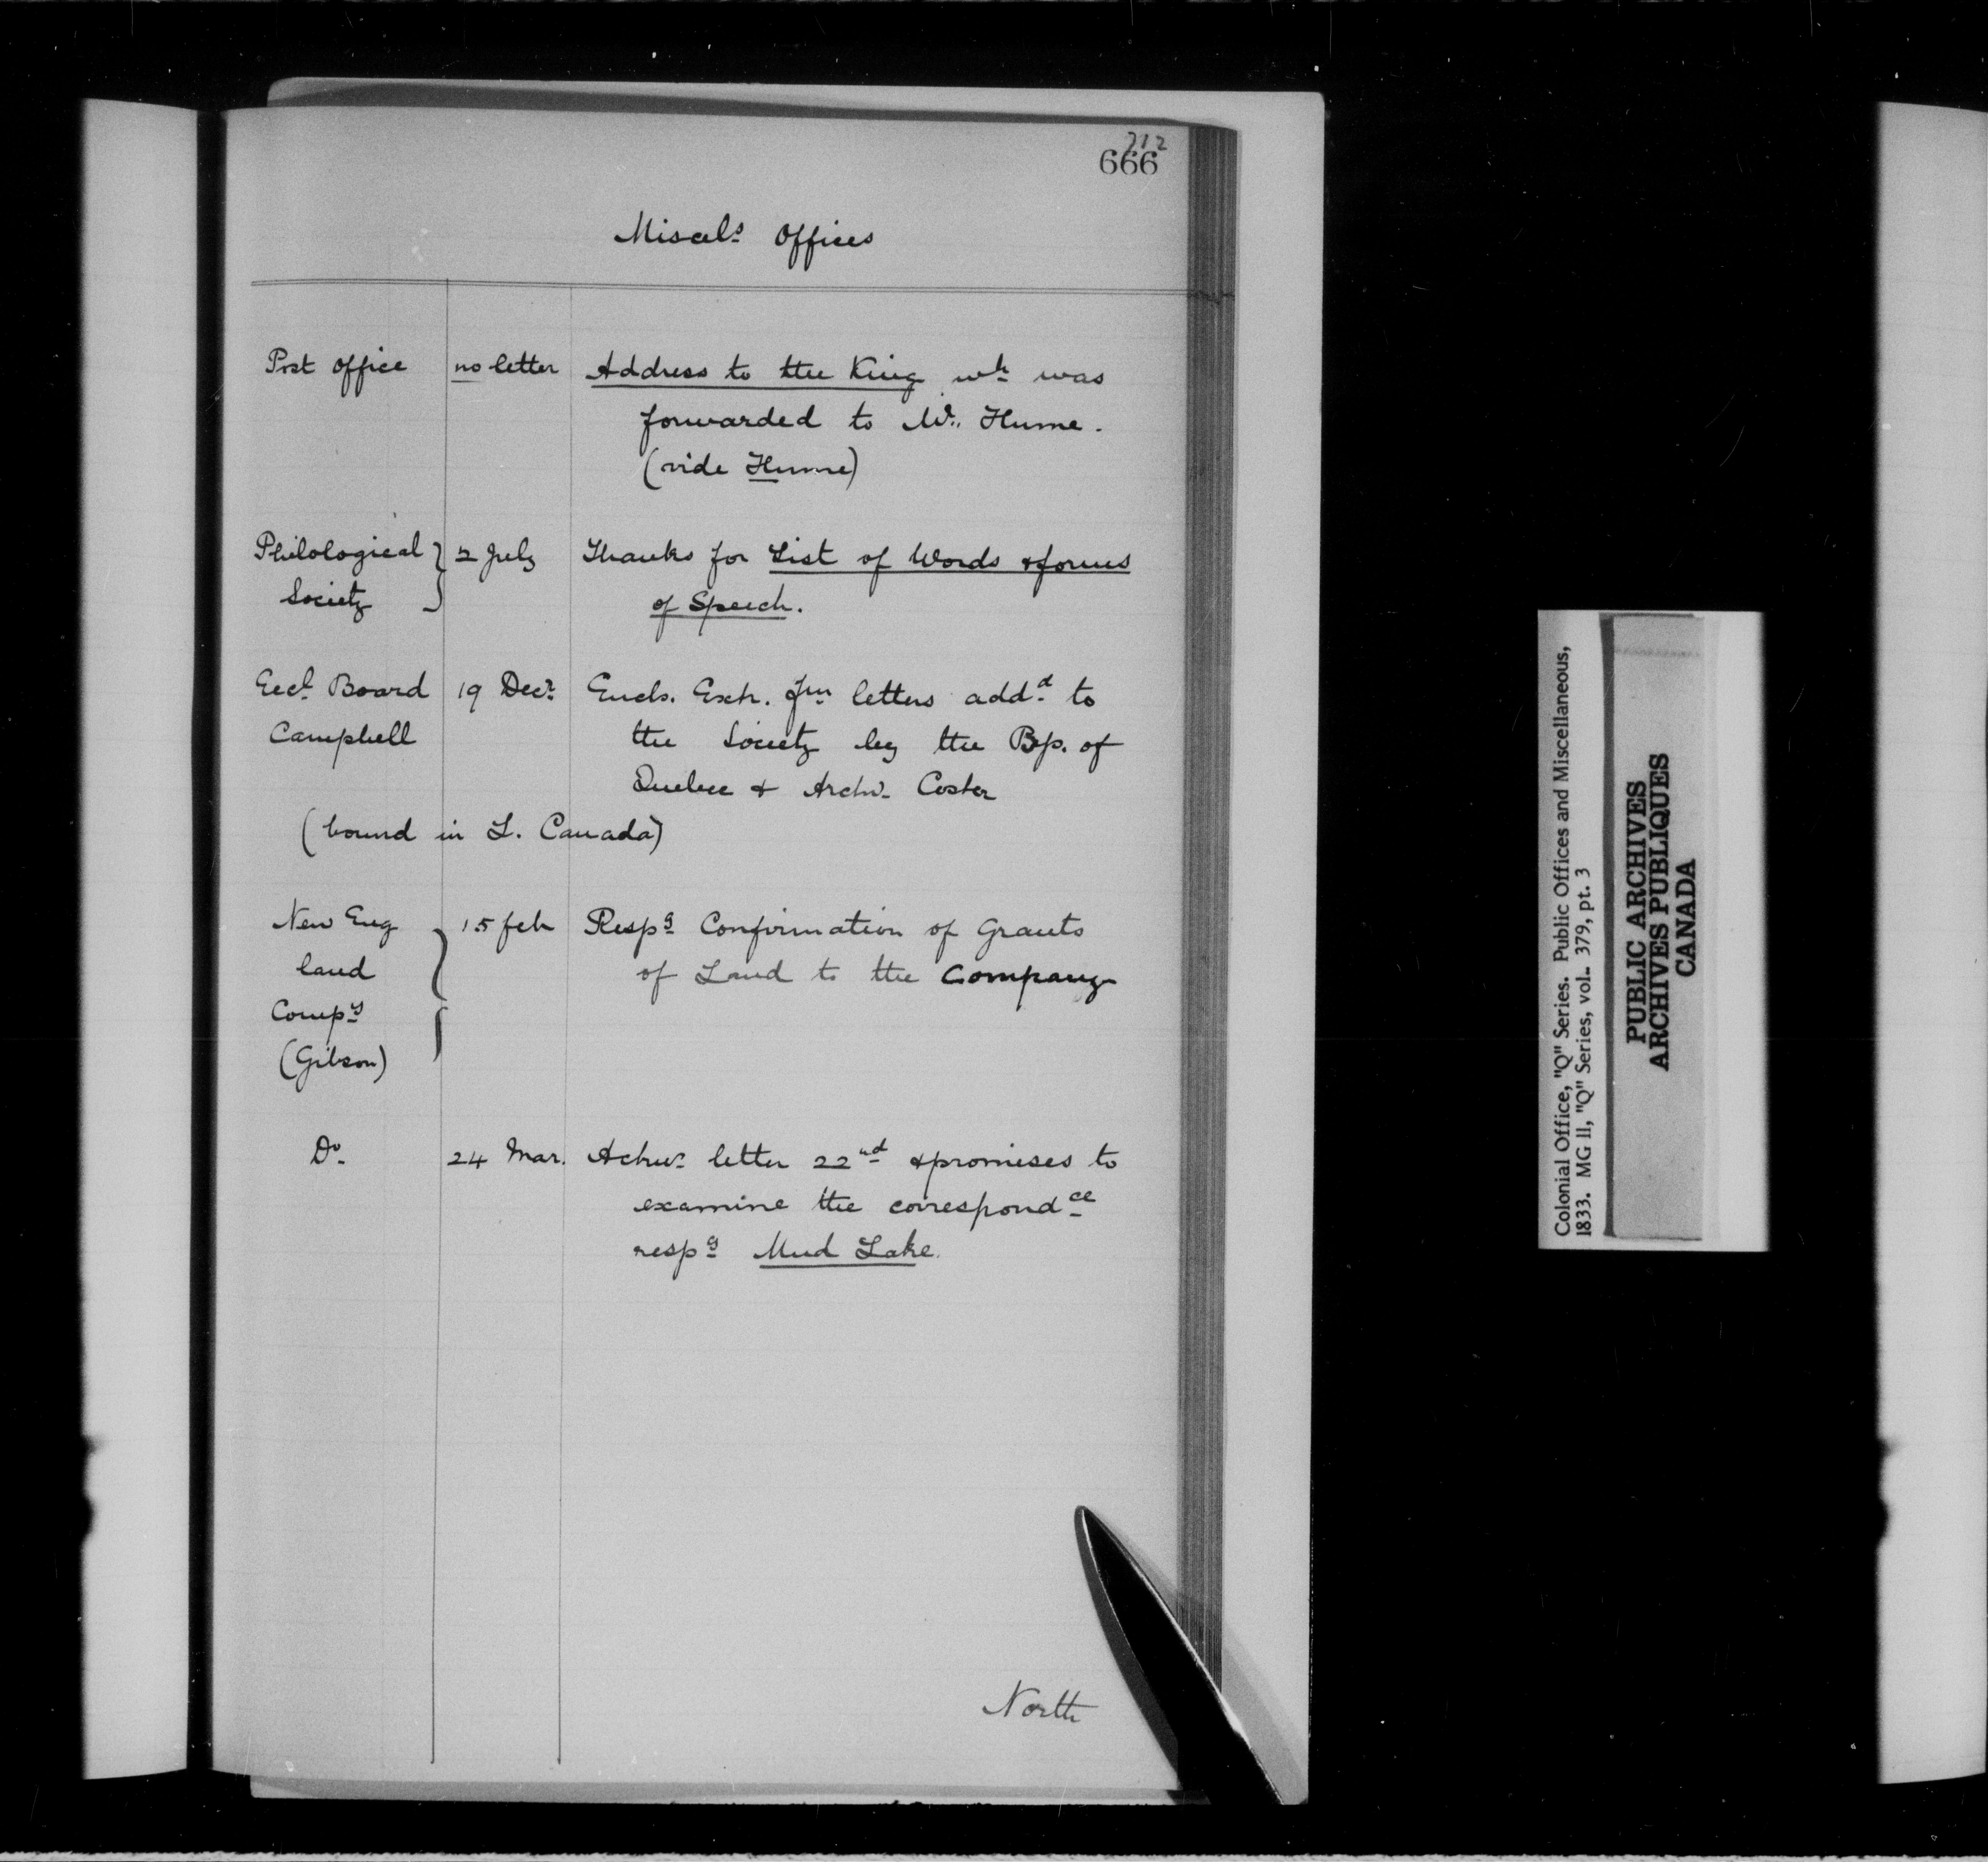 212
666
Miscels Offices
Post Office no letter Address to the King wh was
forwarded to Mr. Hume.
(vide Hume)
Philological } 2 July Thanks for List of Words & forms
Society of Speech.
Eccl Board 19 Decr Encls. Extr. fm letters addd to
Campbell the Society by the Bp. of
Quebec & Archd. Coster
(bound in L. Canada)
New Eng 15 feb Respg Confirmation of Grants
land of Land to the Company
Compy
(Gibson)
Do 24 Mar. letter 22nd & promises to
examine the correspondce
respg Mud Lake.
North
Colonial Office, "Q" Series. Public Offices and Miscellaneous,
1833. MG 11, "Q" Series, vol. 379, pt. 3
PUBLIC ARCHIVES
ARCHIVES PUBLIQUES
CANADA